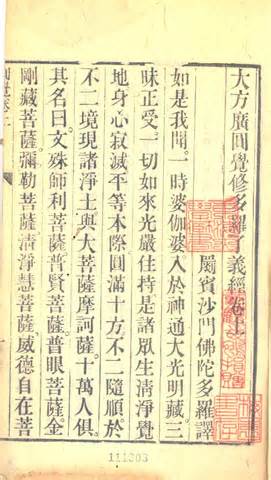 大方廣圓覺修多羅了義經卷上
罽賓沙門佛陀多羅譯
如是我聞。一時婆伽婆入於神通大光明藏。三
昧正受。一切如來光嚴住持是諸眾生清淨覺
地。身心寂滅平等本際圓滿十方不二隨順於
不二境現諸淨土與大菩薩摩訶薩十萬人俱。
其名曰文殊師利菩薩普賢菩薩普眼菩薩。金
剛藏菩薩彌勒菩薩清淨慧菩薩威德自在菩
111203